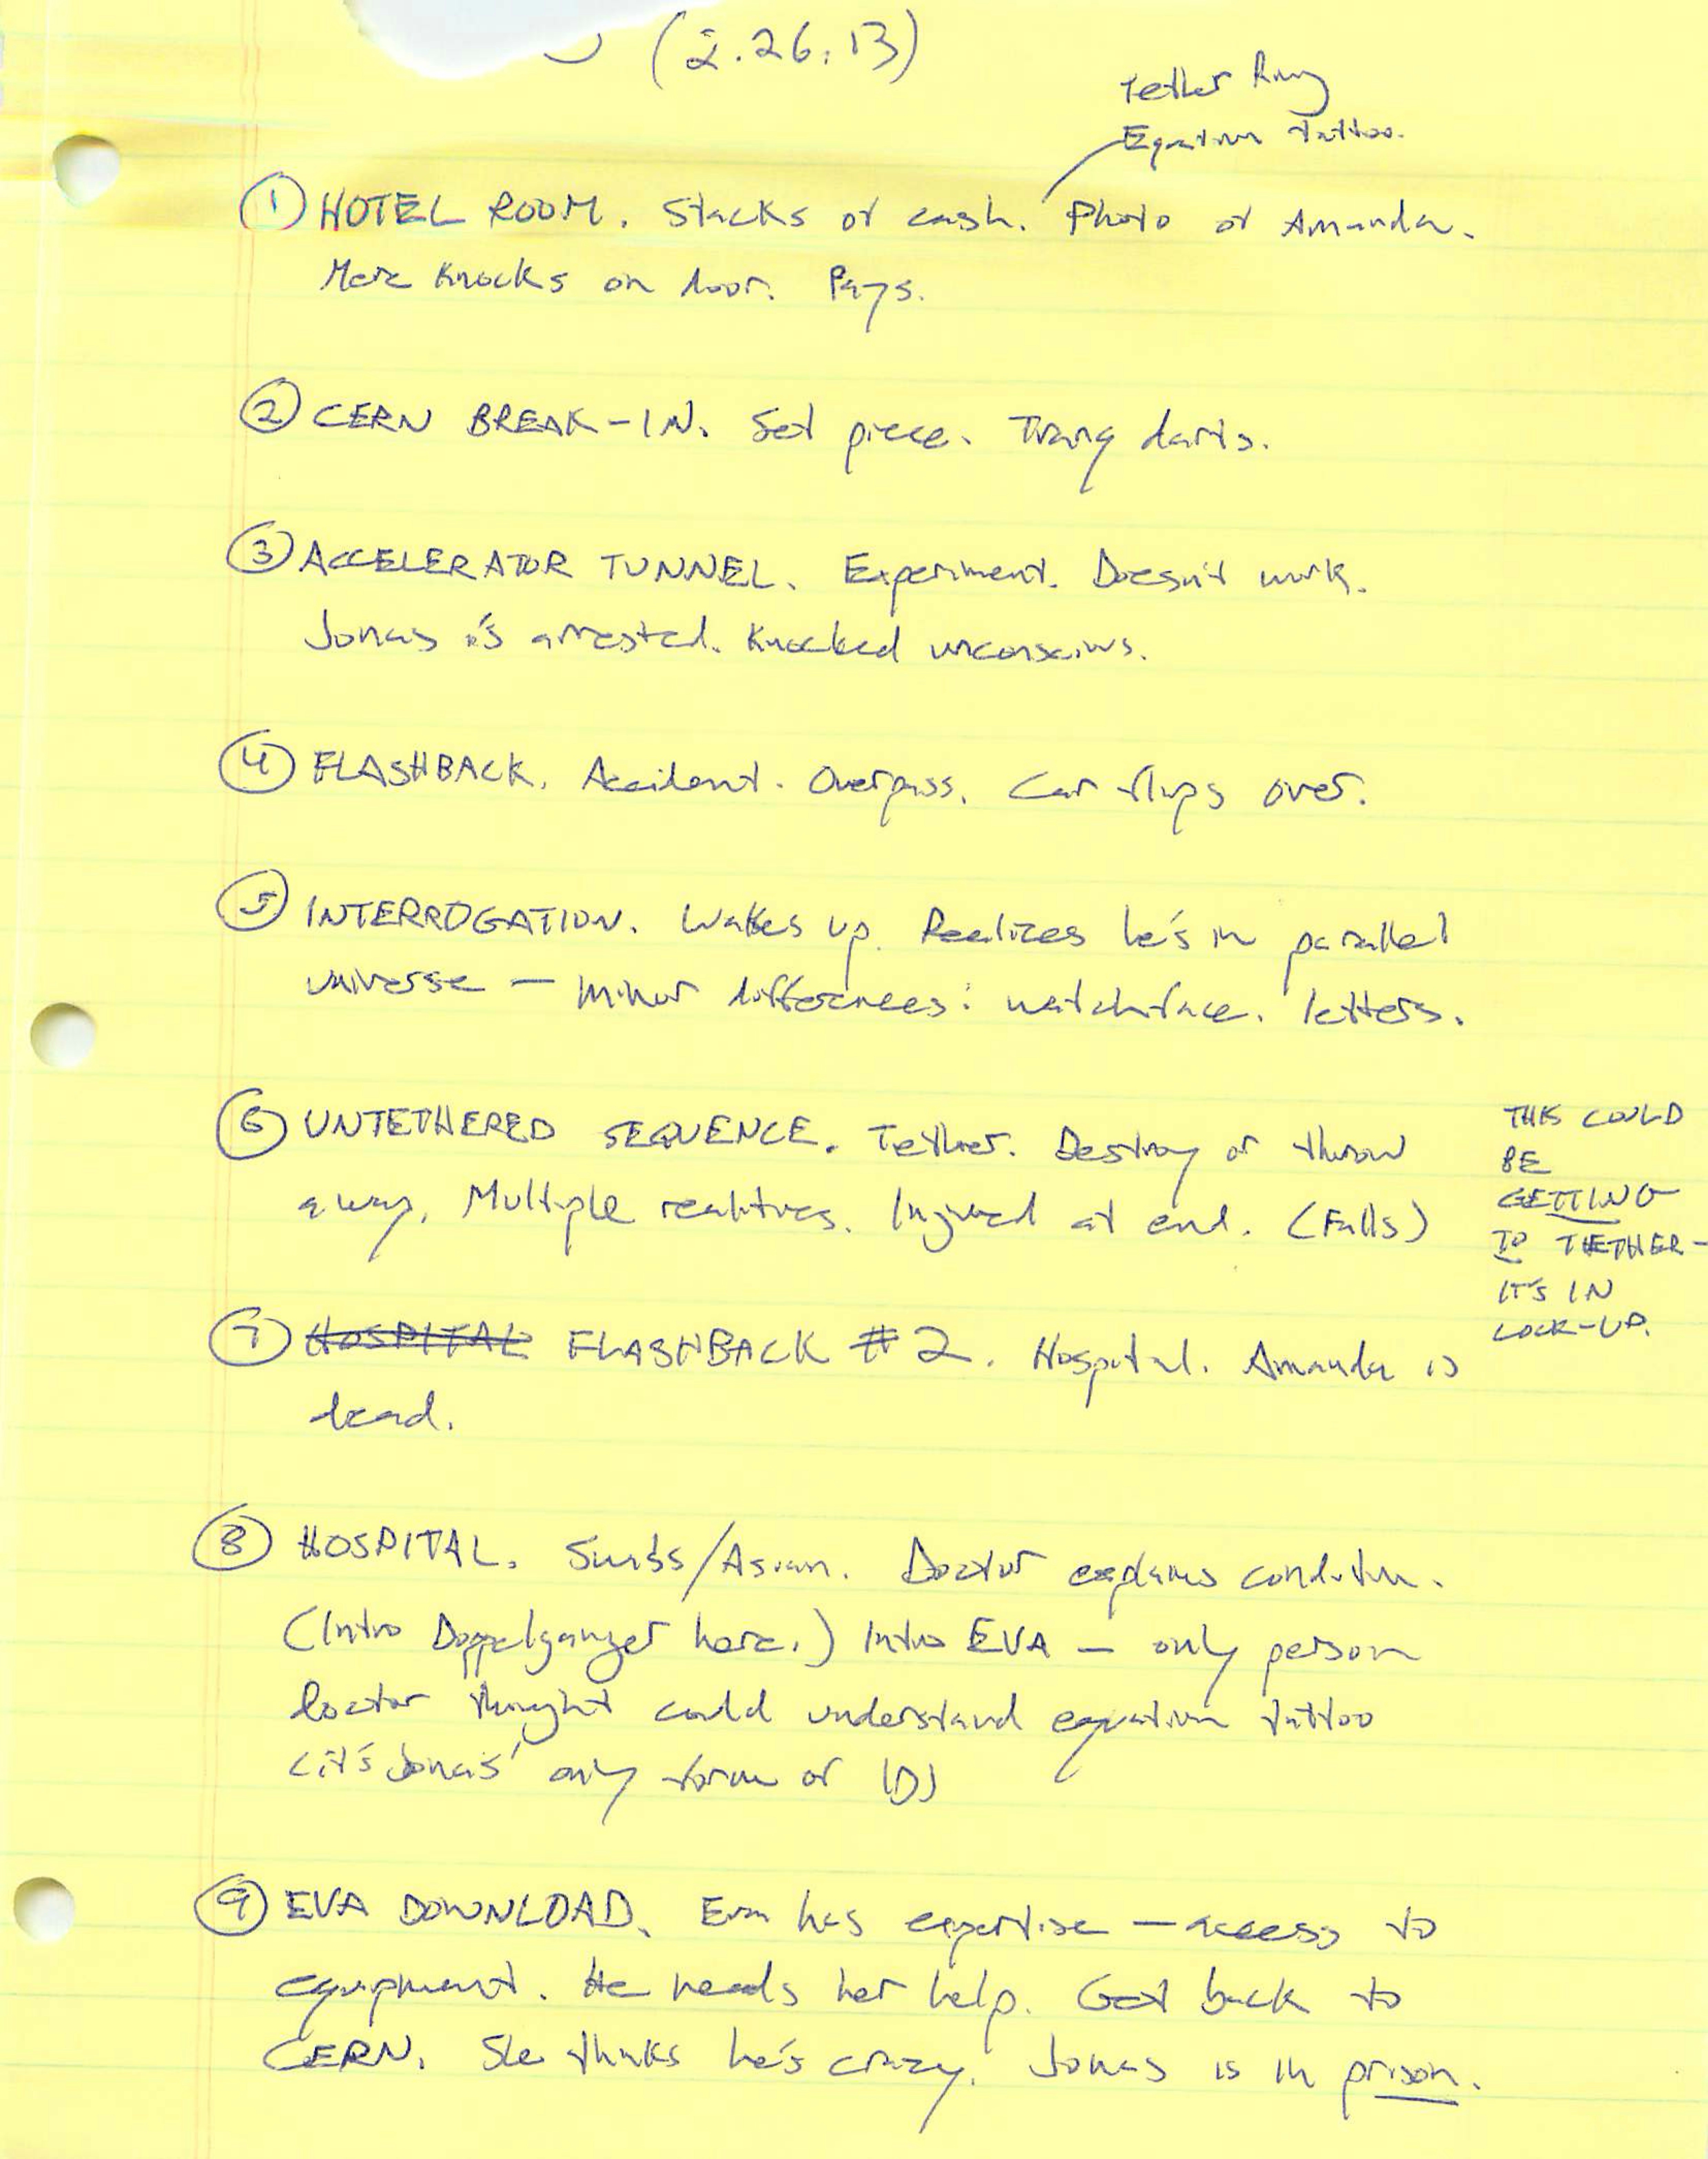 (2.26.13)
Tether Ring
Equation tattoo.
① HOTEL ROOM. Stacks of cash. Photo of Amanda.
Merc knocks on door. Pays.
② CERN BREAK-IN. Set piece. Tranq darts.
③ ACCELERATOR TUNNEL. Experiment. Doesn't work.
Jonas is arrested. Knocked unconscious.
④ FLASHBACK. Accident. Overpass. Car flips over.
⑤ INTERROGATION. Wakes up. Realizes he's in parallel
universe — minor differences: watchface. letters.
⑥ UNTETHERED SEQUENCE. Tether. Destroy or throw
away. Multiple realities. Injured at end. (Falls)
THIS COULD
BE
GETTING
TO TETHER -
IT'S IN
LOCK-UP.
⑦ HOSPITAL FLASHBACK #2. Hospital. Amanda is
dead.
⑧ HOSPITAL. Swiss/Asian. Doctor explains condition.
(Intro Doppelganger here.) Intro EVA — only person
Doctor thought could understand equation tattoo
(it's Jonas' only form of ID)
⑨ EVA DOWNLOAD. Eva has expertise — access to
equipment. He needs her help. Get back to
CERN. She thinks he's crazy. Jonas is in prison.